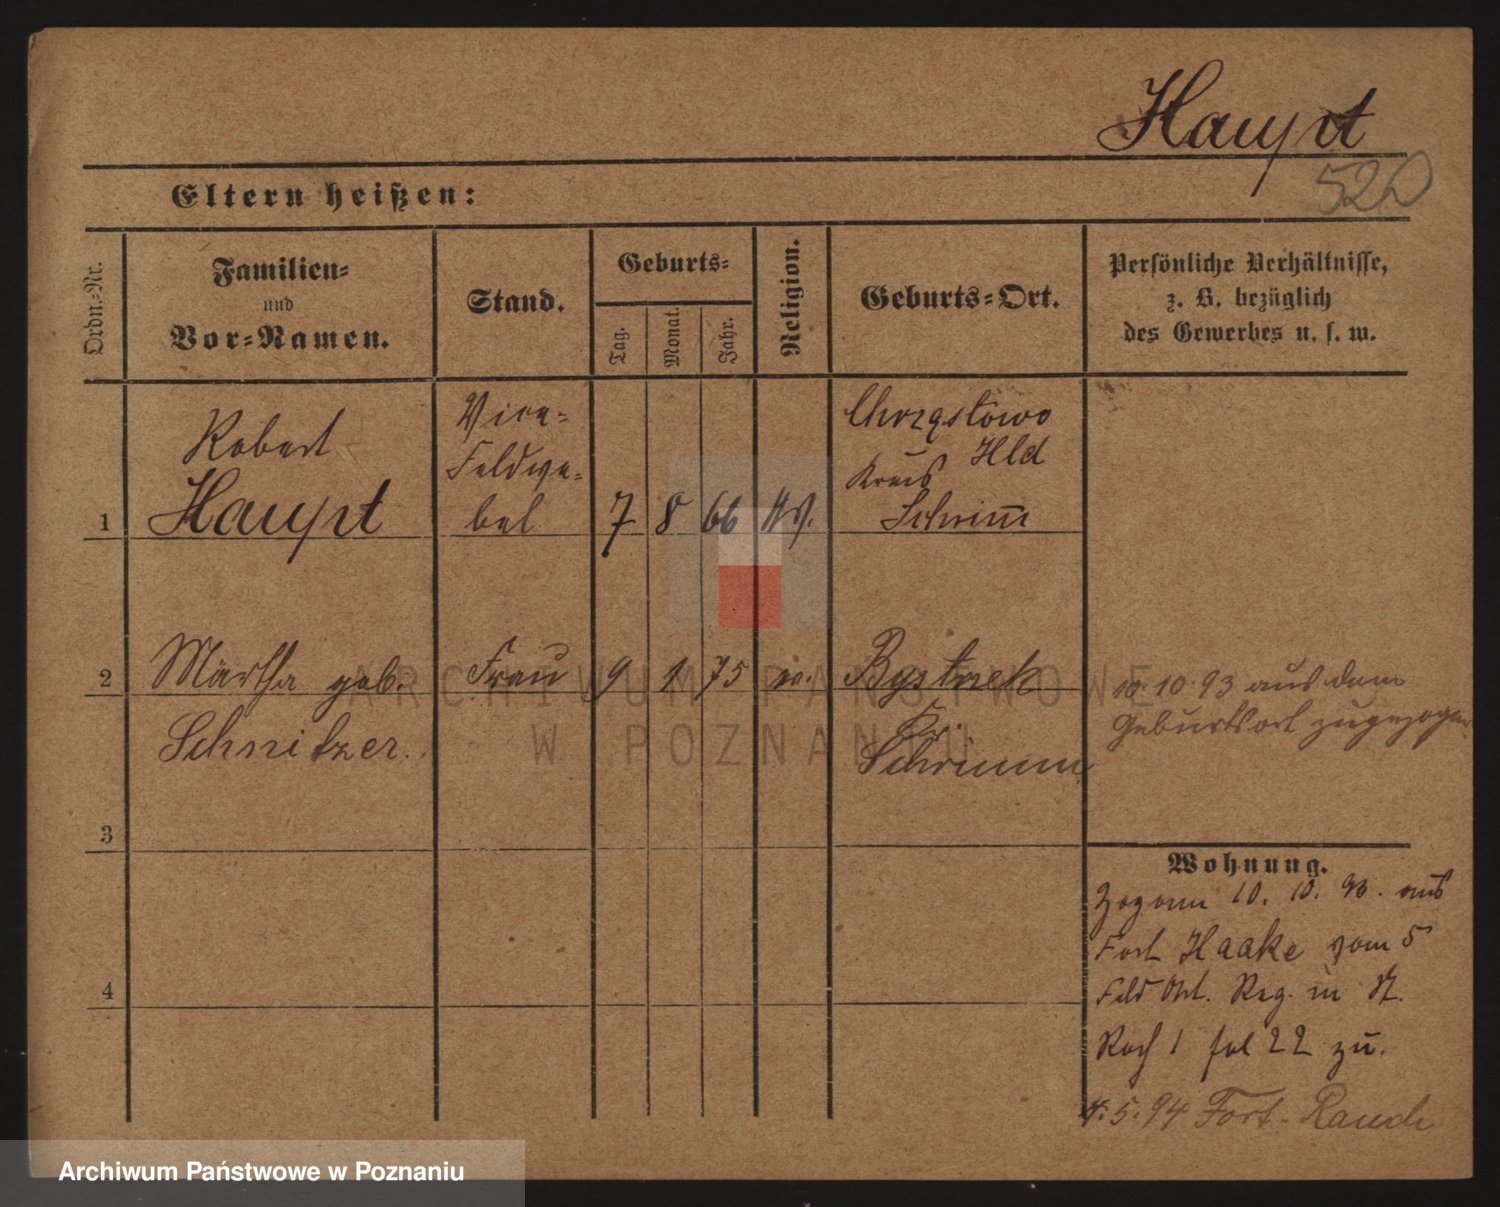 Haupt
520
Eltern heißen:
Ordn.-Nr.
Familien-
und
Vor-Namen.
Stand.
Geburts-
Tag.
Monat.
Jahr.
Religion.
Geburts-Ort.
Persönliche Verhältnisse,
z. B. bezüglich
des Gewerbes u. s. w.
1
Robert
Haupt
Vice-
Feldwe-
bel
7 8 66
Chrząstowo
Hld
Kreis
Schrim̄
2
Martha geb.
Schnitzer.
Frau
9 1 75 ev.
Kr.
Schrimm
10. 10. 93 aus dem
Geburtsort zugezogen
3
4
Wohnung.
Zog am 10. 10. 93. aus
Fort Haake vom 5
Feld Art. Reg. in St.
Roch 1 fol 22 zu.
4. 5. 94 Fort. Rauch
ARCHIWUM PAŃSTWOWE
W POZNANIU
Archiwum Państwowe w Poznaniu